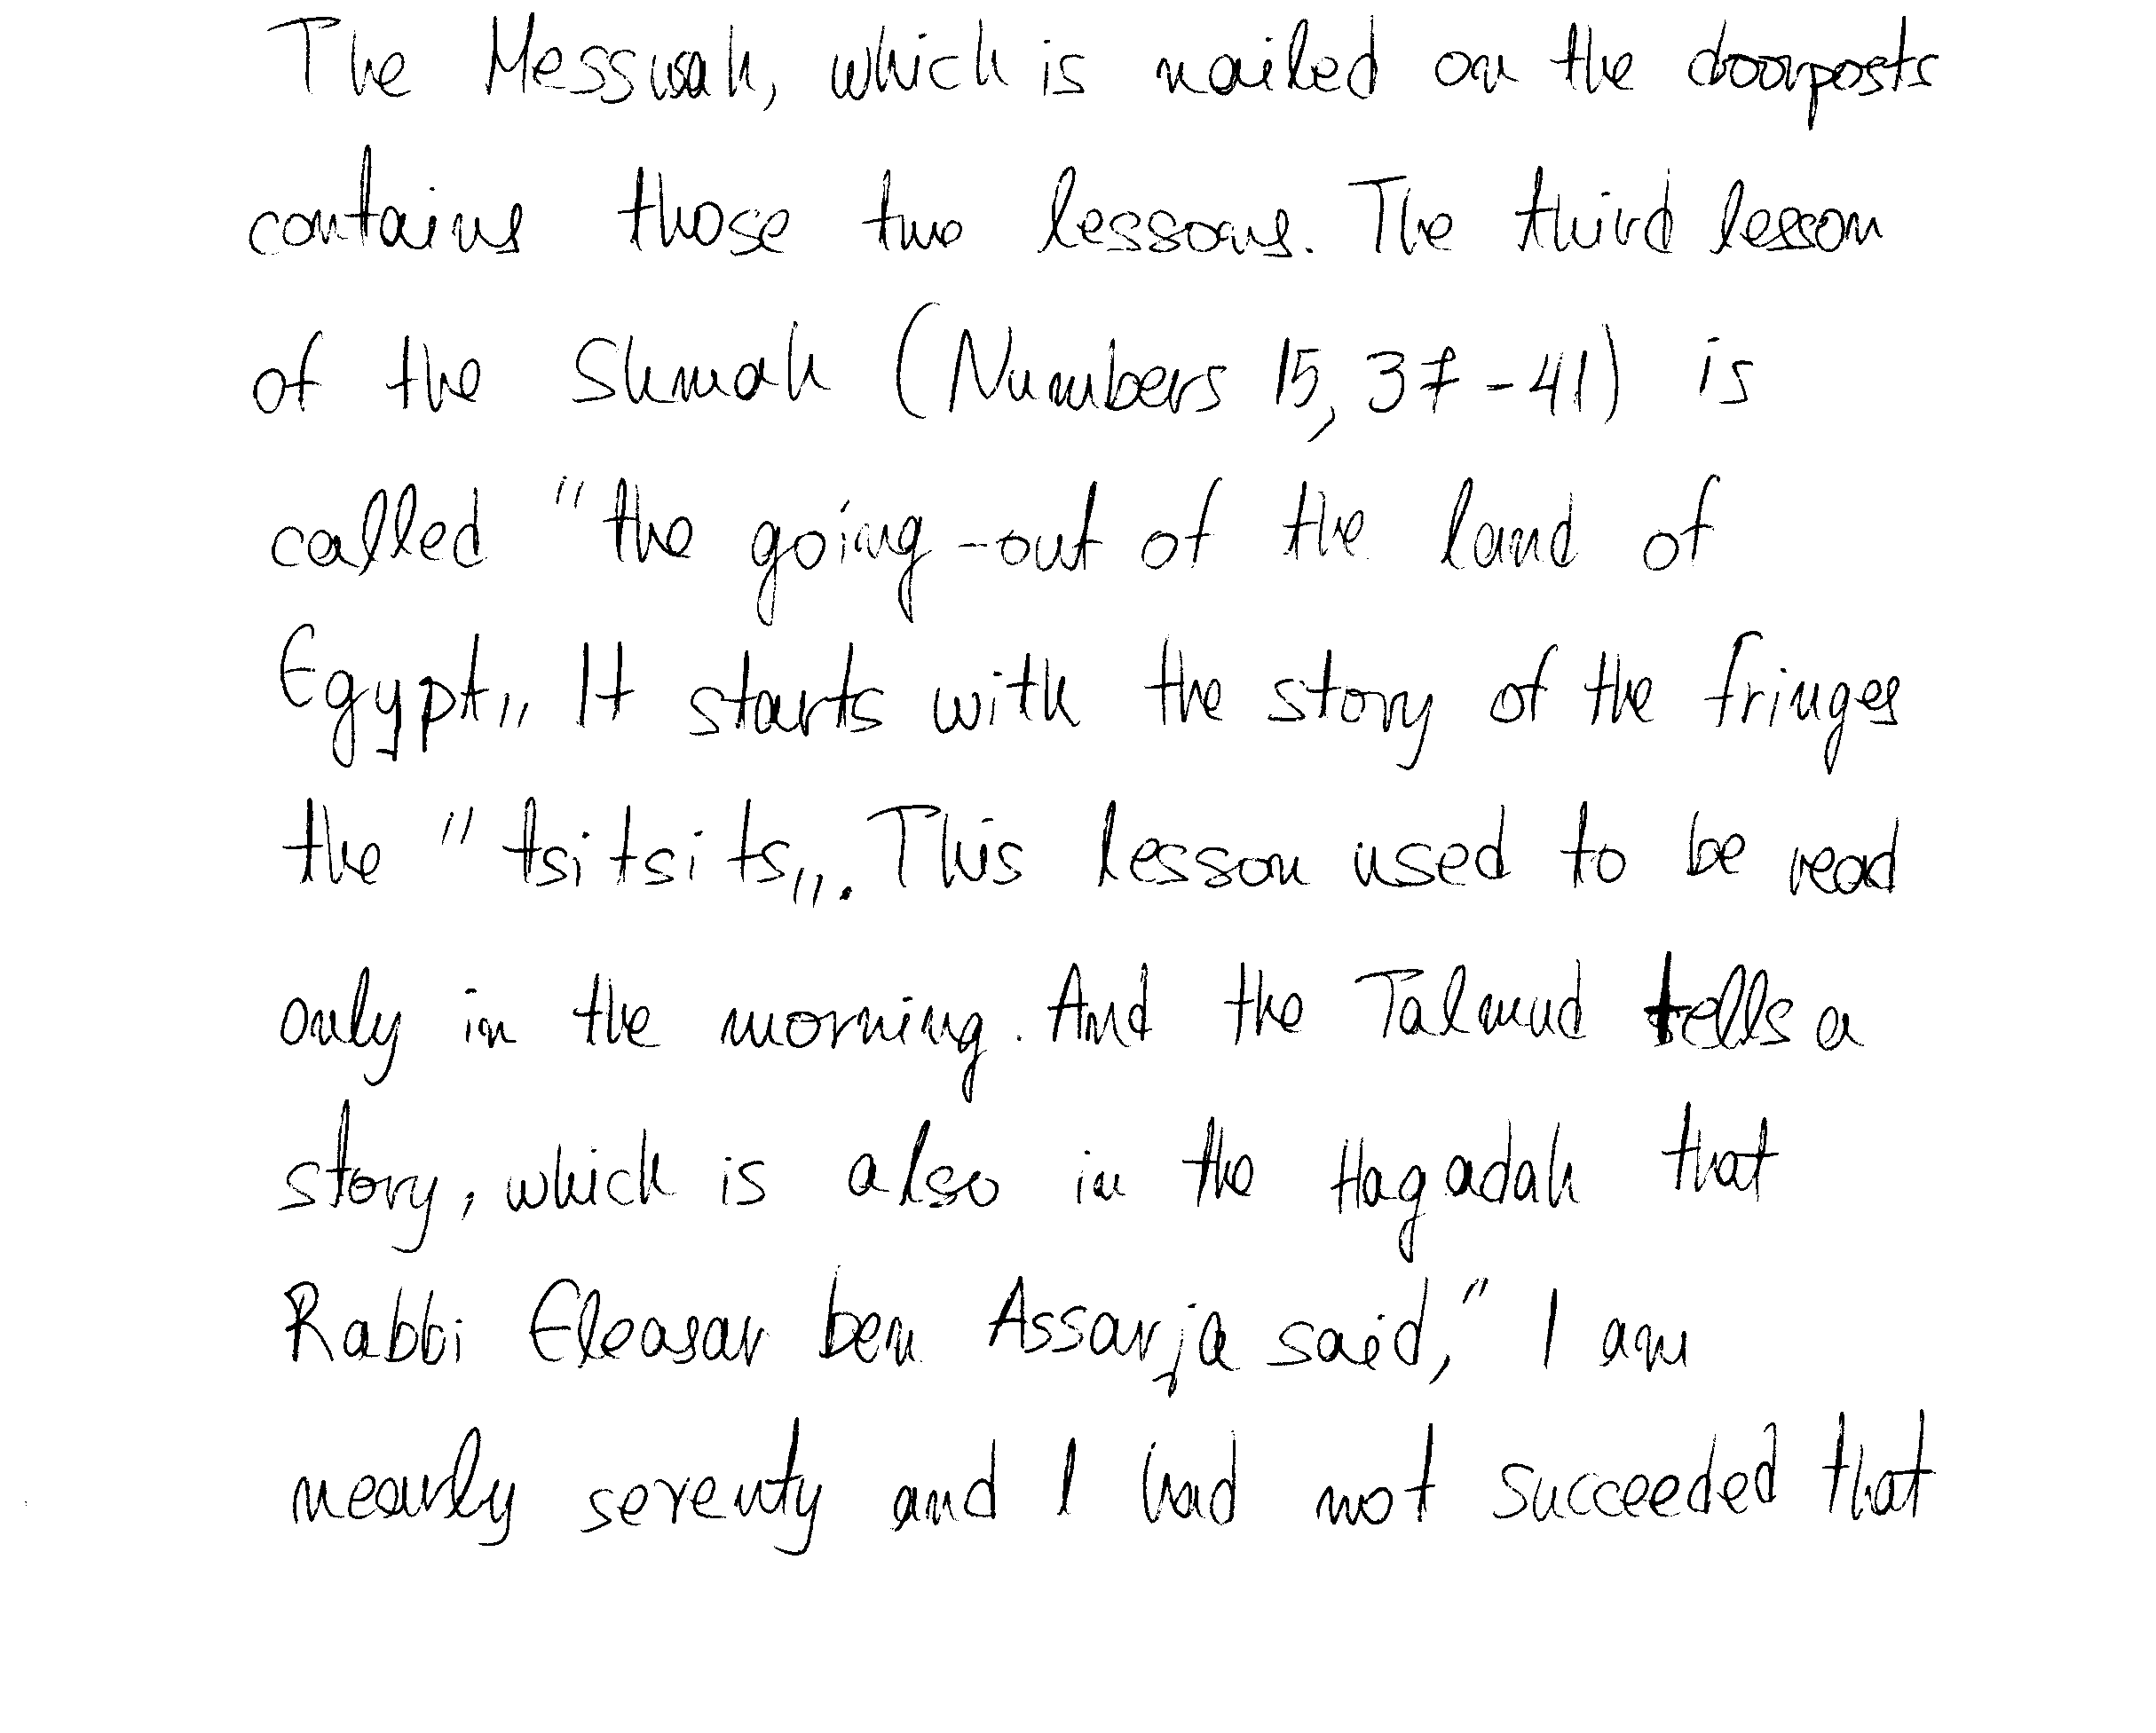 The Messusah, which is nailed on the doorposts
contains those two lessons. The third lesson
of the Shmah (Numbers 15, 37-41) is
called "the going-out of the land of
Egypt„ It starts with the story of the fringes
the "tsitsits„. This lesson used to be read
only in the morning. And the Talmud tells a
story, which is also in the Hagadah that
Rabbi Eleasar ben Assarja said," I am
nearly seventy and I had not succeeded that